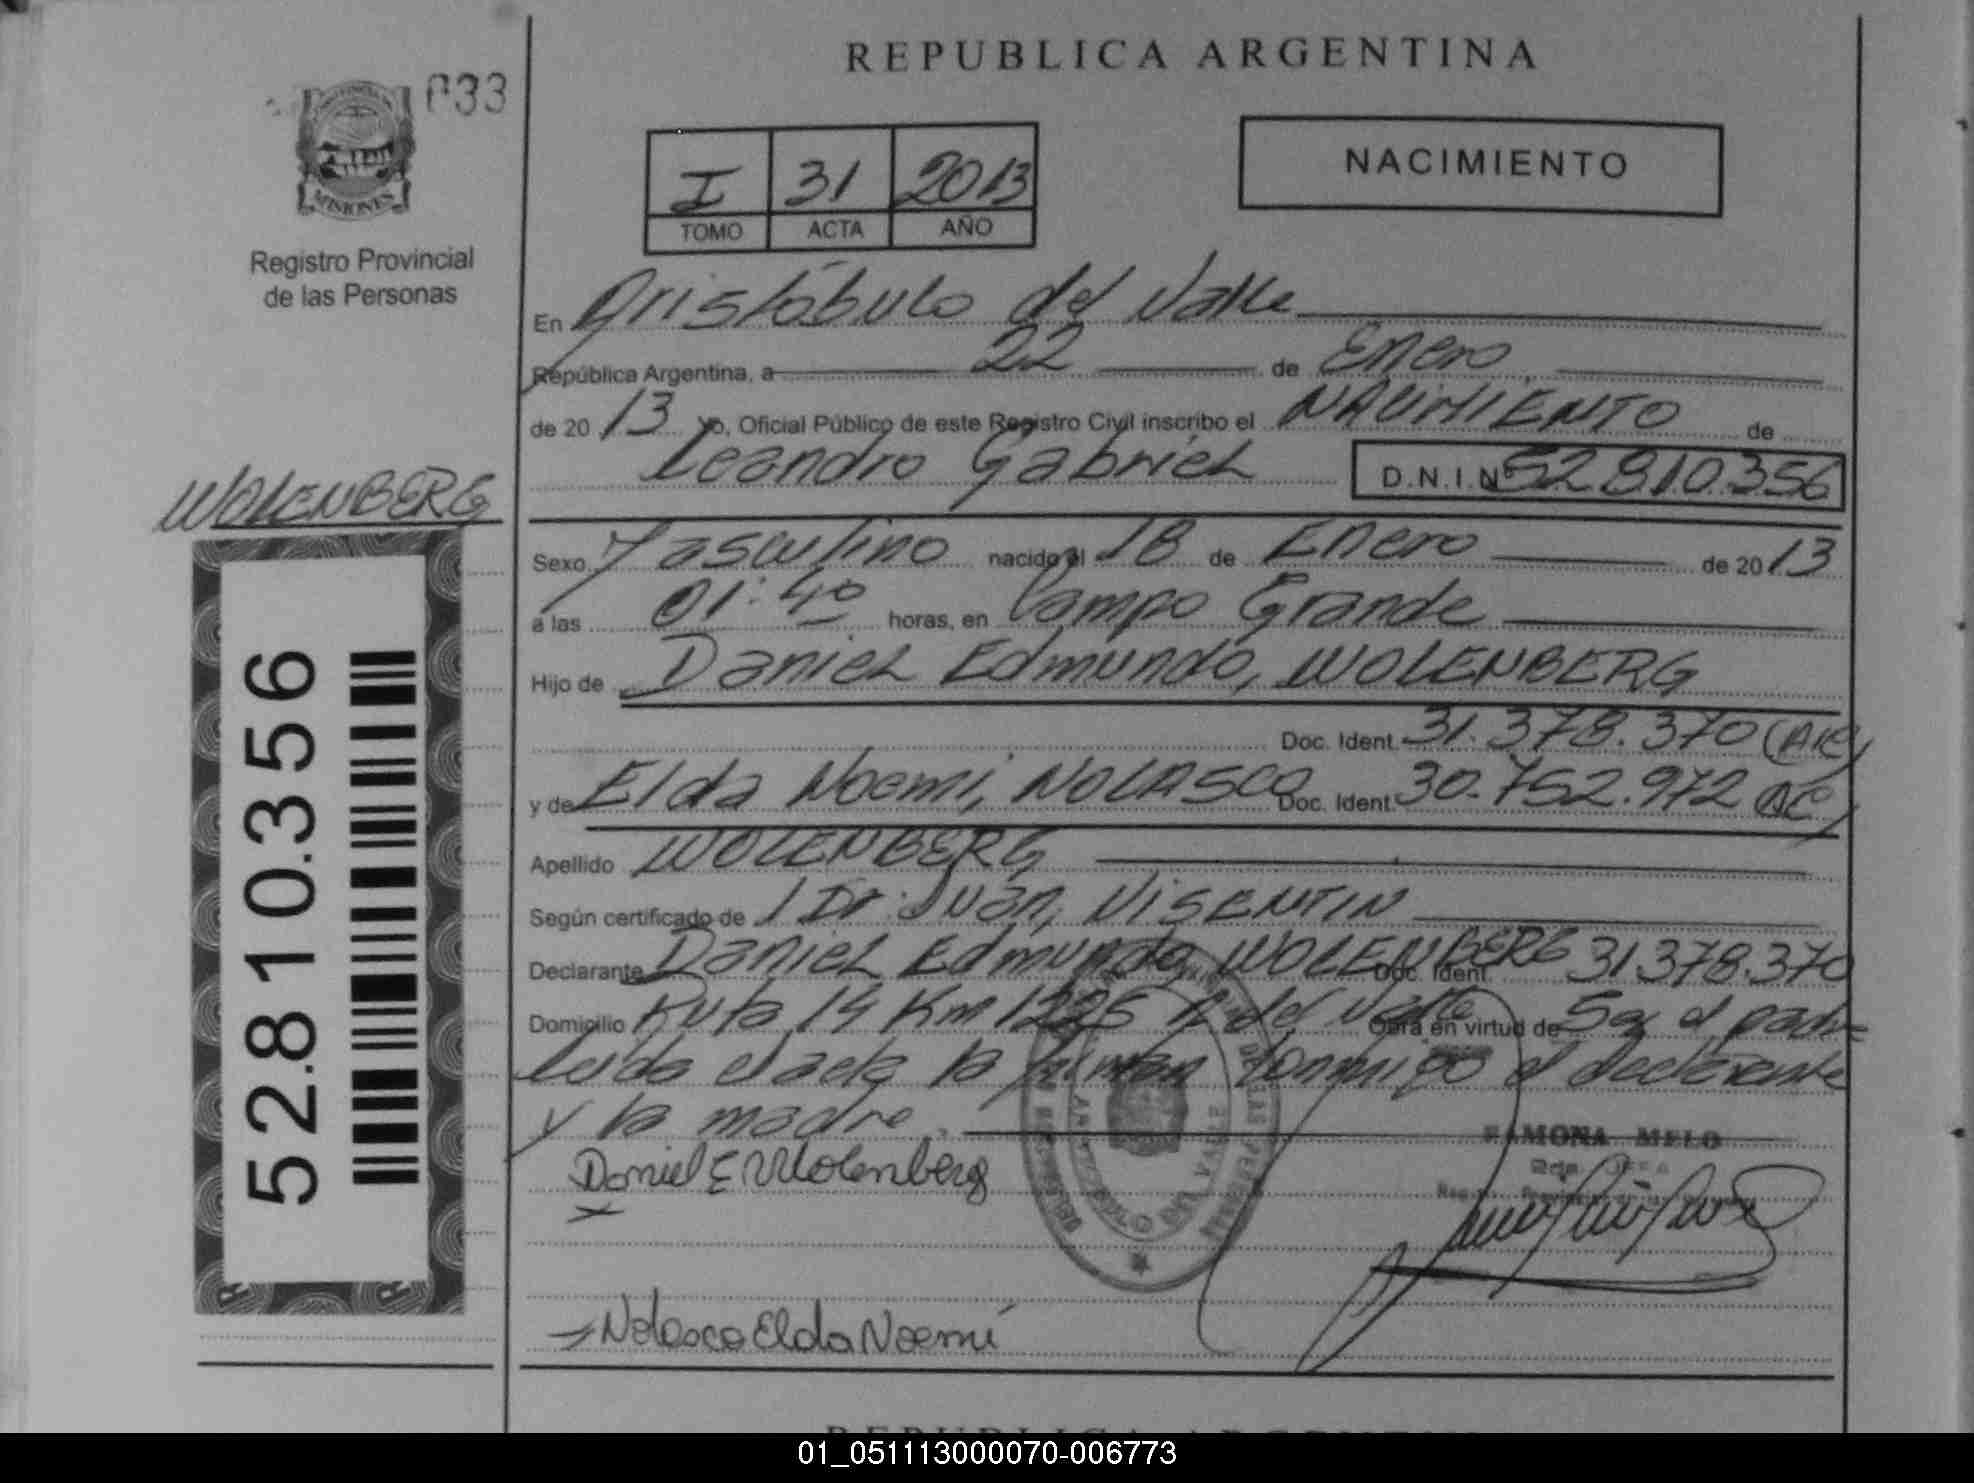 REPUBLICA ARGENTINA
033
PROVINCIA DE
MISIONES
Registro Provincial
de las Personas
I 31 2013
TOMO ACTA AÑO
NACIMIENTO
En Aristóbulo del Valle
República Argentina, a 22 de Enero
de 20 13 Yo, Oficial Público de este Registro Civil inscribo el NACIMIENTO de
Leandro Gabriel D.N.I.Nº 52.810.356
WOLENBERG
Sexo Masculino nacido el 18 de Enero de 20 13
a las 01:40 horas, en Campo Grande
Hijo de Daniel Edmundo, WOLENBERG
Doc. Ident. 31.378.370
y de Elda Noemi, NOLASCO Doc. Ident. 30.752.972
Apellido WOLENBERG
Según certificado de Dr. Juan, VISENTIN
Declarante Daniel Edmundo, WOLENBERG Doc. Ident. 31.378.370
Domicilio Ruta 14 Km 1225 A. del Valle Obra en virtud de Ser el padre
leida el acta la firman conmigo el declarante
y la madre.
RAMONA MELO
Daniel E Wolenberg
Nolasco Elda Noemí
52.810.356
REPUBLICA ARGENTINA
01_051113000070-006773